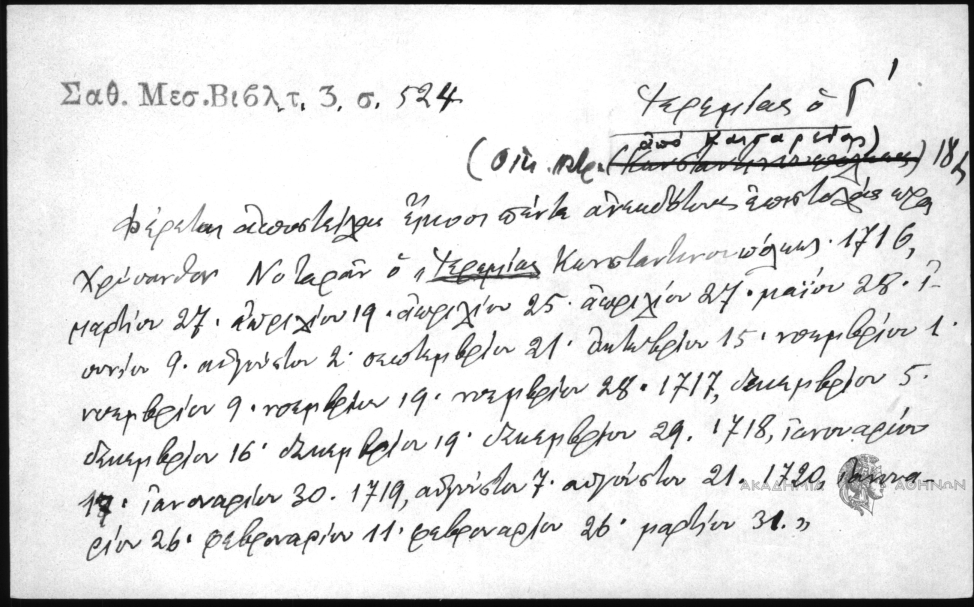 Σαθ. Μεσ.Βιβλ,τ. 3, σ. 524
Ἱερεμίας ὁ Γ'
ἀπὸ Καισαρείας)
(οἰκ. πτρ. (Κωνσταντινουπόλεως) 18
Φέρεται ἀποστείλας εἴκοσι πέντε ἀνεκδότους ἐπιστολὰς πρὸς
Χρύσανθον Νοταρᾶν ὁ "Ἱερεμίας Κωνσταντινουπόλεως. 1716,
μαρτίου 27· ἀπριλίου 19· ἀπριλίου 25· ἀπριλίου 27· μαΐου 28· ἰ-
ουνίου 9· αὐγούστου 2· σεπτεμβρίου 21· ὀκτωβρίου 15· νοεμβρίου 1·
νοεμβρίου 9· νοεμβρίου 19· νοεμβρίου 28· 1717, δεκεμβρίου 5·
δεκεμβρίου 16· δεκεμβρίου 19· δεκεμβρίου 29. 1718, ἰανουαρίου
17· ἰανουαρίου 30. 1719, αὐγούστου 7· αὐγούστου 21. 1720, ἰανουα-
ρίου 26· φεβρουαρίου 11· φεβρουαρίου 26· μαρτίου 31.»
ΑΚΑΔΗΜΙΑ ΑΘΗΝΩΝ